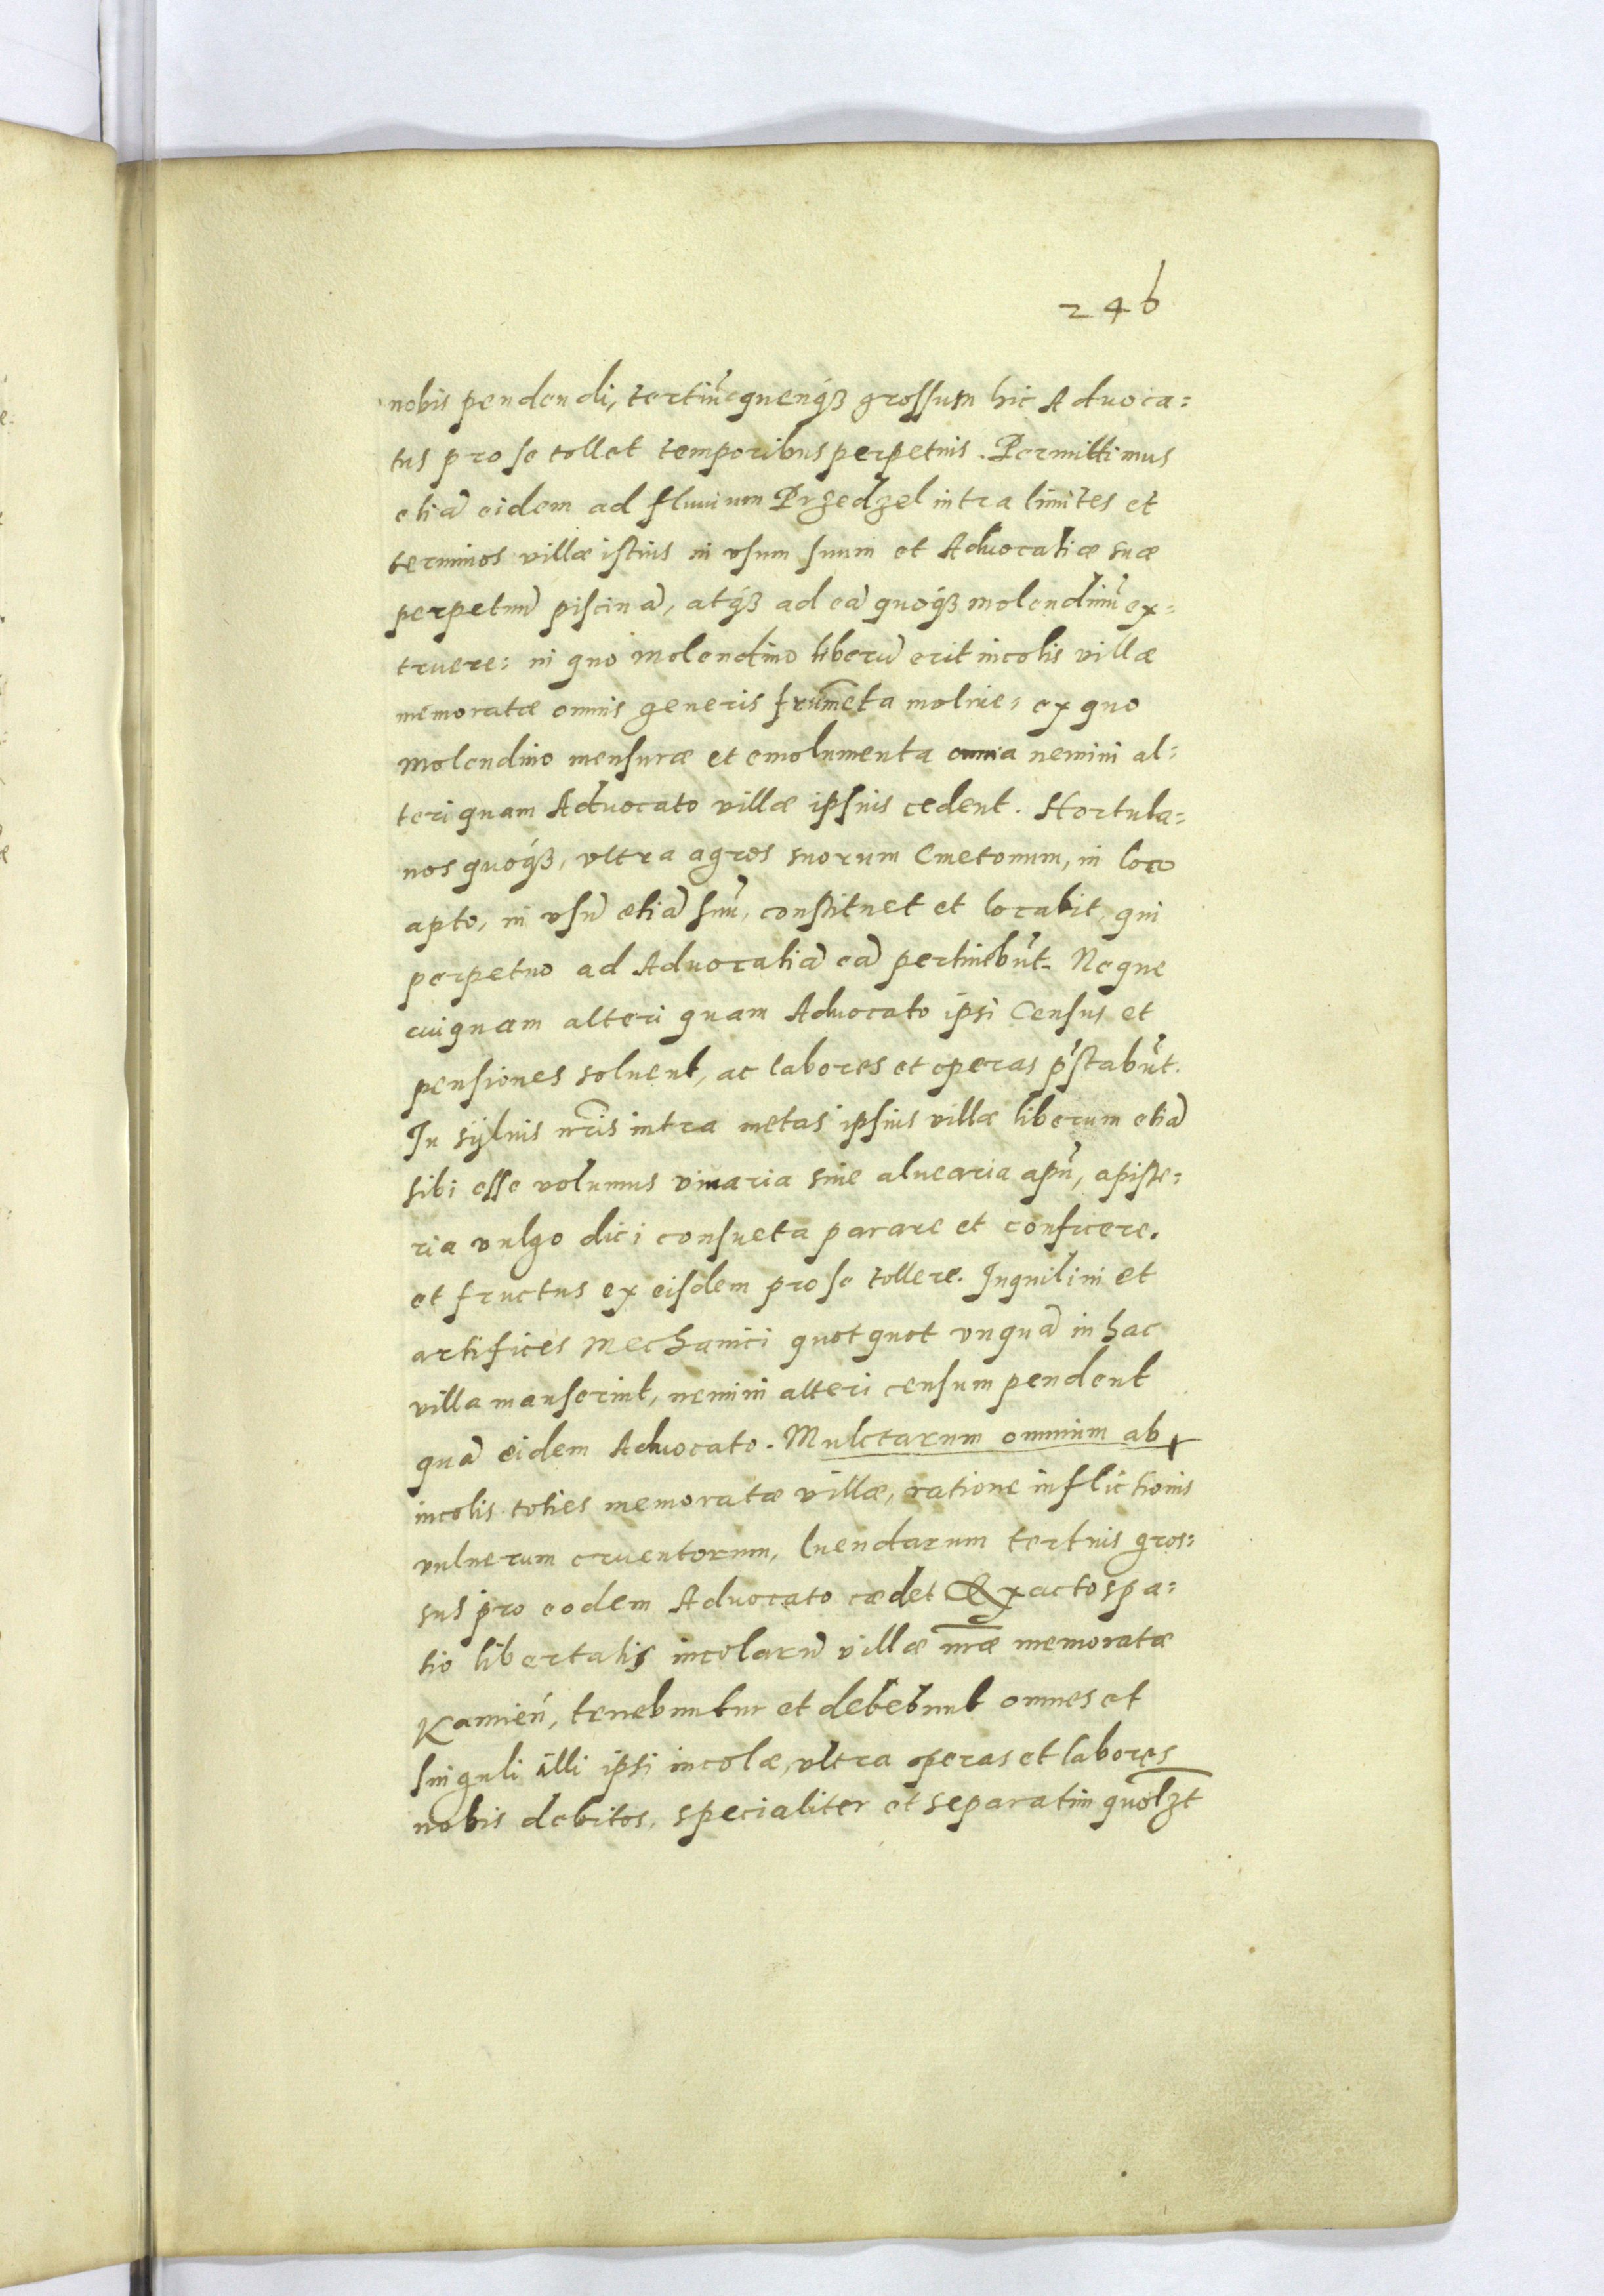 246
nobis pendendi, tertiũcquenqꝫ grossum hic Advoca=
tus pro se tollet temporibus perpetuis. Permittimus
etiã eidem ad fluuium Przedzel intra limites et
terminos villæ istius in vsum suum et Aduocatiæ suæ
perpetuũ piscinã, atqꝫ ad eã quoqꝫ molendinũ ex=
truere: in quo molendino liberũ erit incolis villæ
memoratæ omnis generis frum̃eta molere: ex quo
molendino mensuræ et emolumenta omnia nemini al=
teri quam Aduocato villæ ipsius cedent. Hortula=
nos quoqꝫ, vltra agros suorum Cmetonum, in loco
apto, in vsũ etiã suũ, constituet et locabit, qui
perpetuo ad Aduocatiã eã pertinebũt. Neque
cuiquam alteri quam Aduocato ipsi Census et
pensiones soluent, ac labores et operas p̃stabũt.
In syluis nr̃is intra metas ipsius villæ liberum etiã
sibi esse volumus viuaria siue aluearia apũ, apiste=
ria vulgo dici consueta parare et conficere.
et fructus ex eisdem pro se tollere. Inquilini et
artifices Mechanici quotquot vnquã in hac
villa manserint, nemini alteri censum pendent
quã eidem Aduocato. Mulctarum omnium ab
incolis toties memoratæ villæ, ratione inflictionis
vulnerum cruentorum, luendarum tertius gros=
sus pro eodem Aduocato cædet Exacto spa=
tio libertatis incolarũ villæ nr̃æ memoratæ
Kamień, tenebuntur et debebunt omnes et
singuli illi ipsi incolæ, vltra operas et labores
nobis debitos, specialiter et separatim quolꝫt